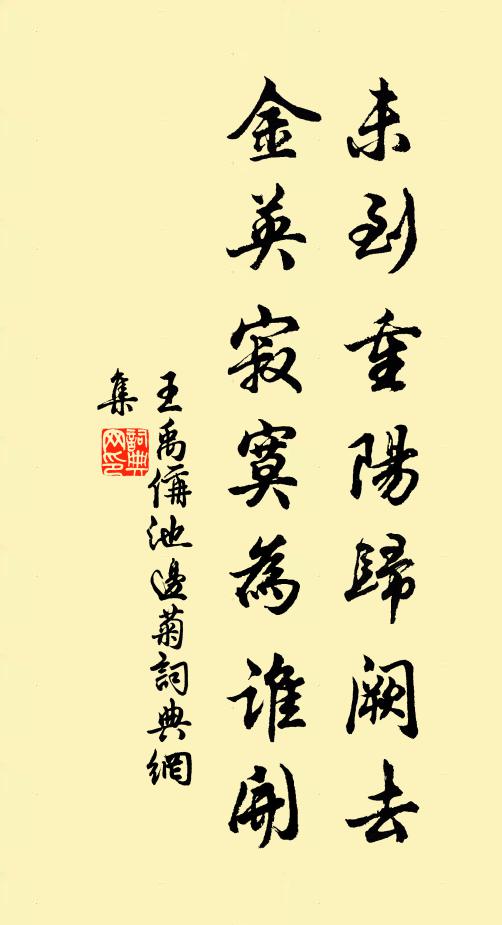 未到重陽歸闕去
金英寂寞為誰開
王禹偁池邊菊詞典網
集
詞典
网印